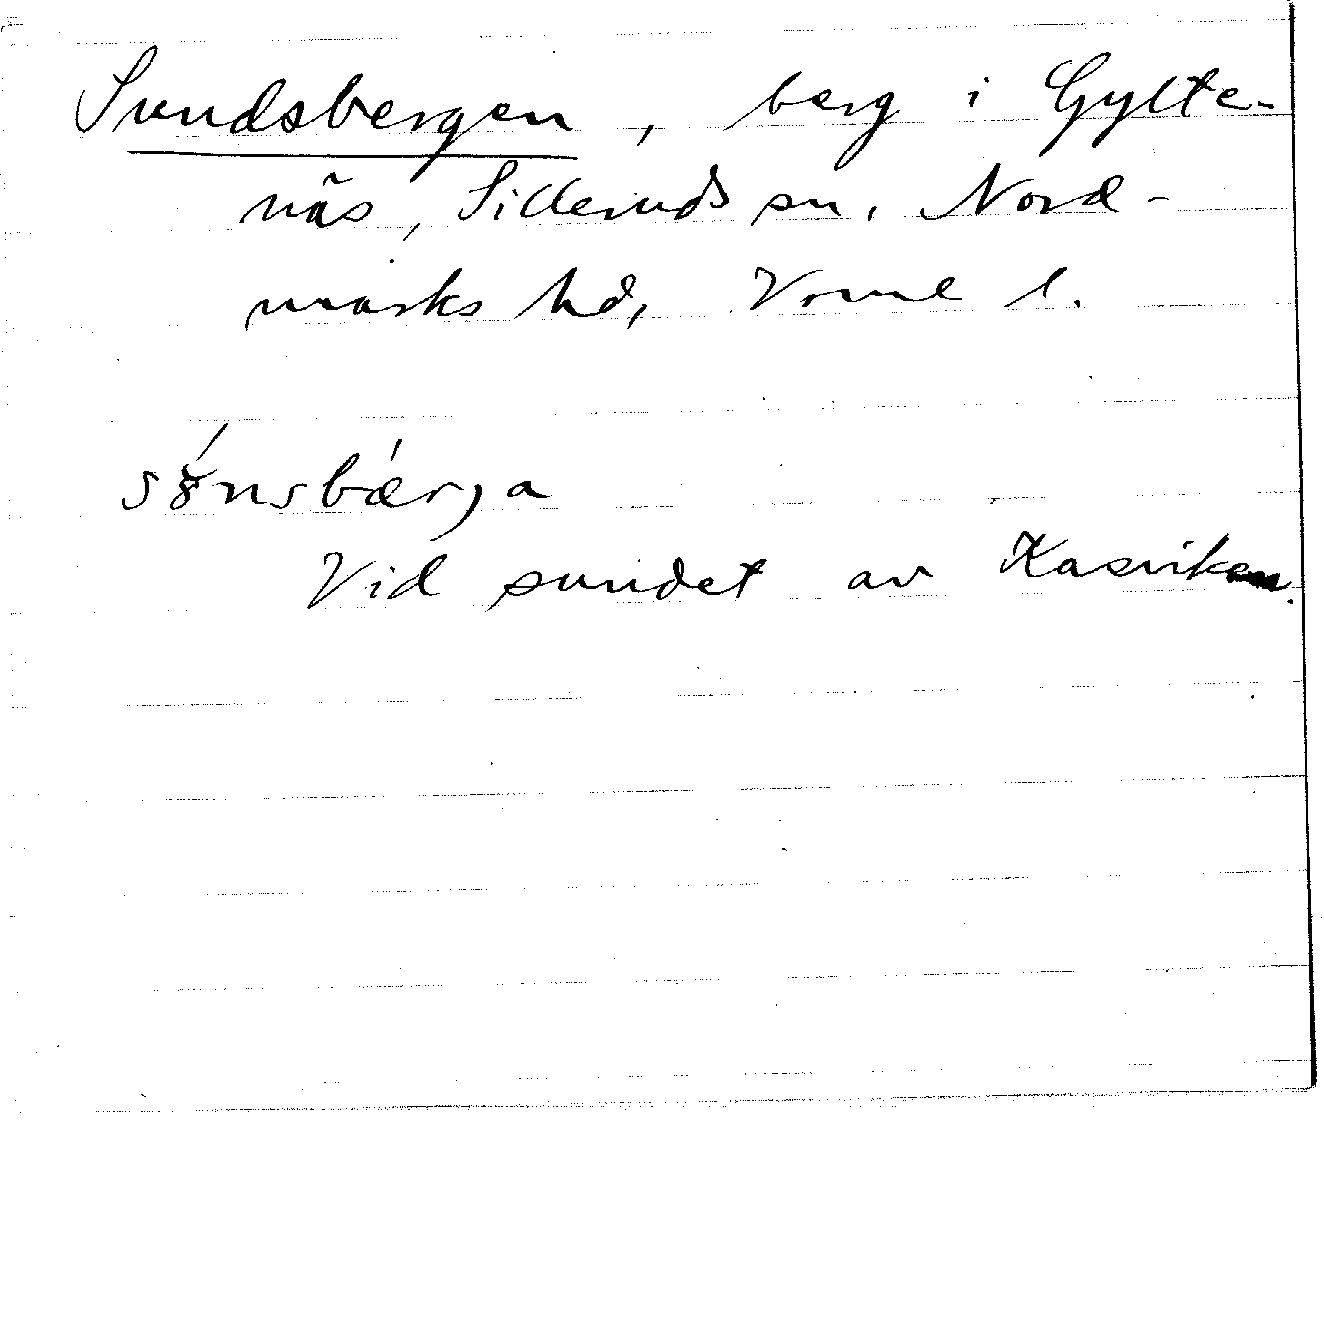 Sundsbergen, berg i Gylte-
näs, Silleruds sn, Nord-
marks hd, Vrml l.
sɣ́nsbǽrja
Vid sundet av Kasviken.